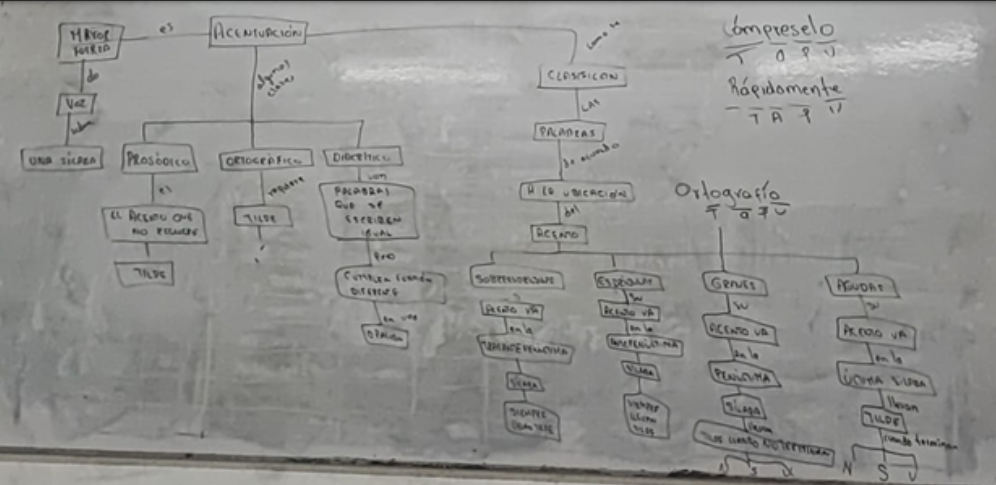 MAYOR
FUERZA
es
ACENTUACIÓN
como se
Cómpreselo
T A P U
do
algunas
clases
CLASIFICAN
Rápidamente
T A P U
VOZ
LAS
PALABRAS
UNA SÍLABA
PROSÓDICO
ORTOGRÁFICO
DIACRÍTICO
de acuerdo
es
requiere
son
A LA UBICACIÓN
Ortografía
T A P U
EL ACENTO QUE
NO REQUIERE
TILDE
PALABRAS
QUE SE
ESCRIBEN
IGUAL
del
ACENTO
TILDE
pero
CUMPLEN FUNCIÓN
DIFERENTE
en una
ORACIÓN
SOBREESDRÚJULAS
ACENTO VA
en la
TRASANTEPENÚLTIMA
SÍLABA
SIEMPRE
LLEVAN TILDE
ESDRÚJULAS
SU
ACENTO VA
en la
ANTEPENÚLTIMA
SÍLABA
SIEMPRE
LLEVAN
TILDE
GRAVES
SU
ACENTO VA
en la
PENÚLTIMA
SÍLABA
llevan
TILDE CUANDO NO TERMINAN
N S V
AGUDAS
SU
ACENTO VA
en la
ÚLTIMA SÍLABA
llevan
TILDE
cuando terminan
N S V